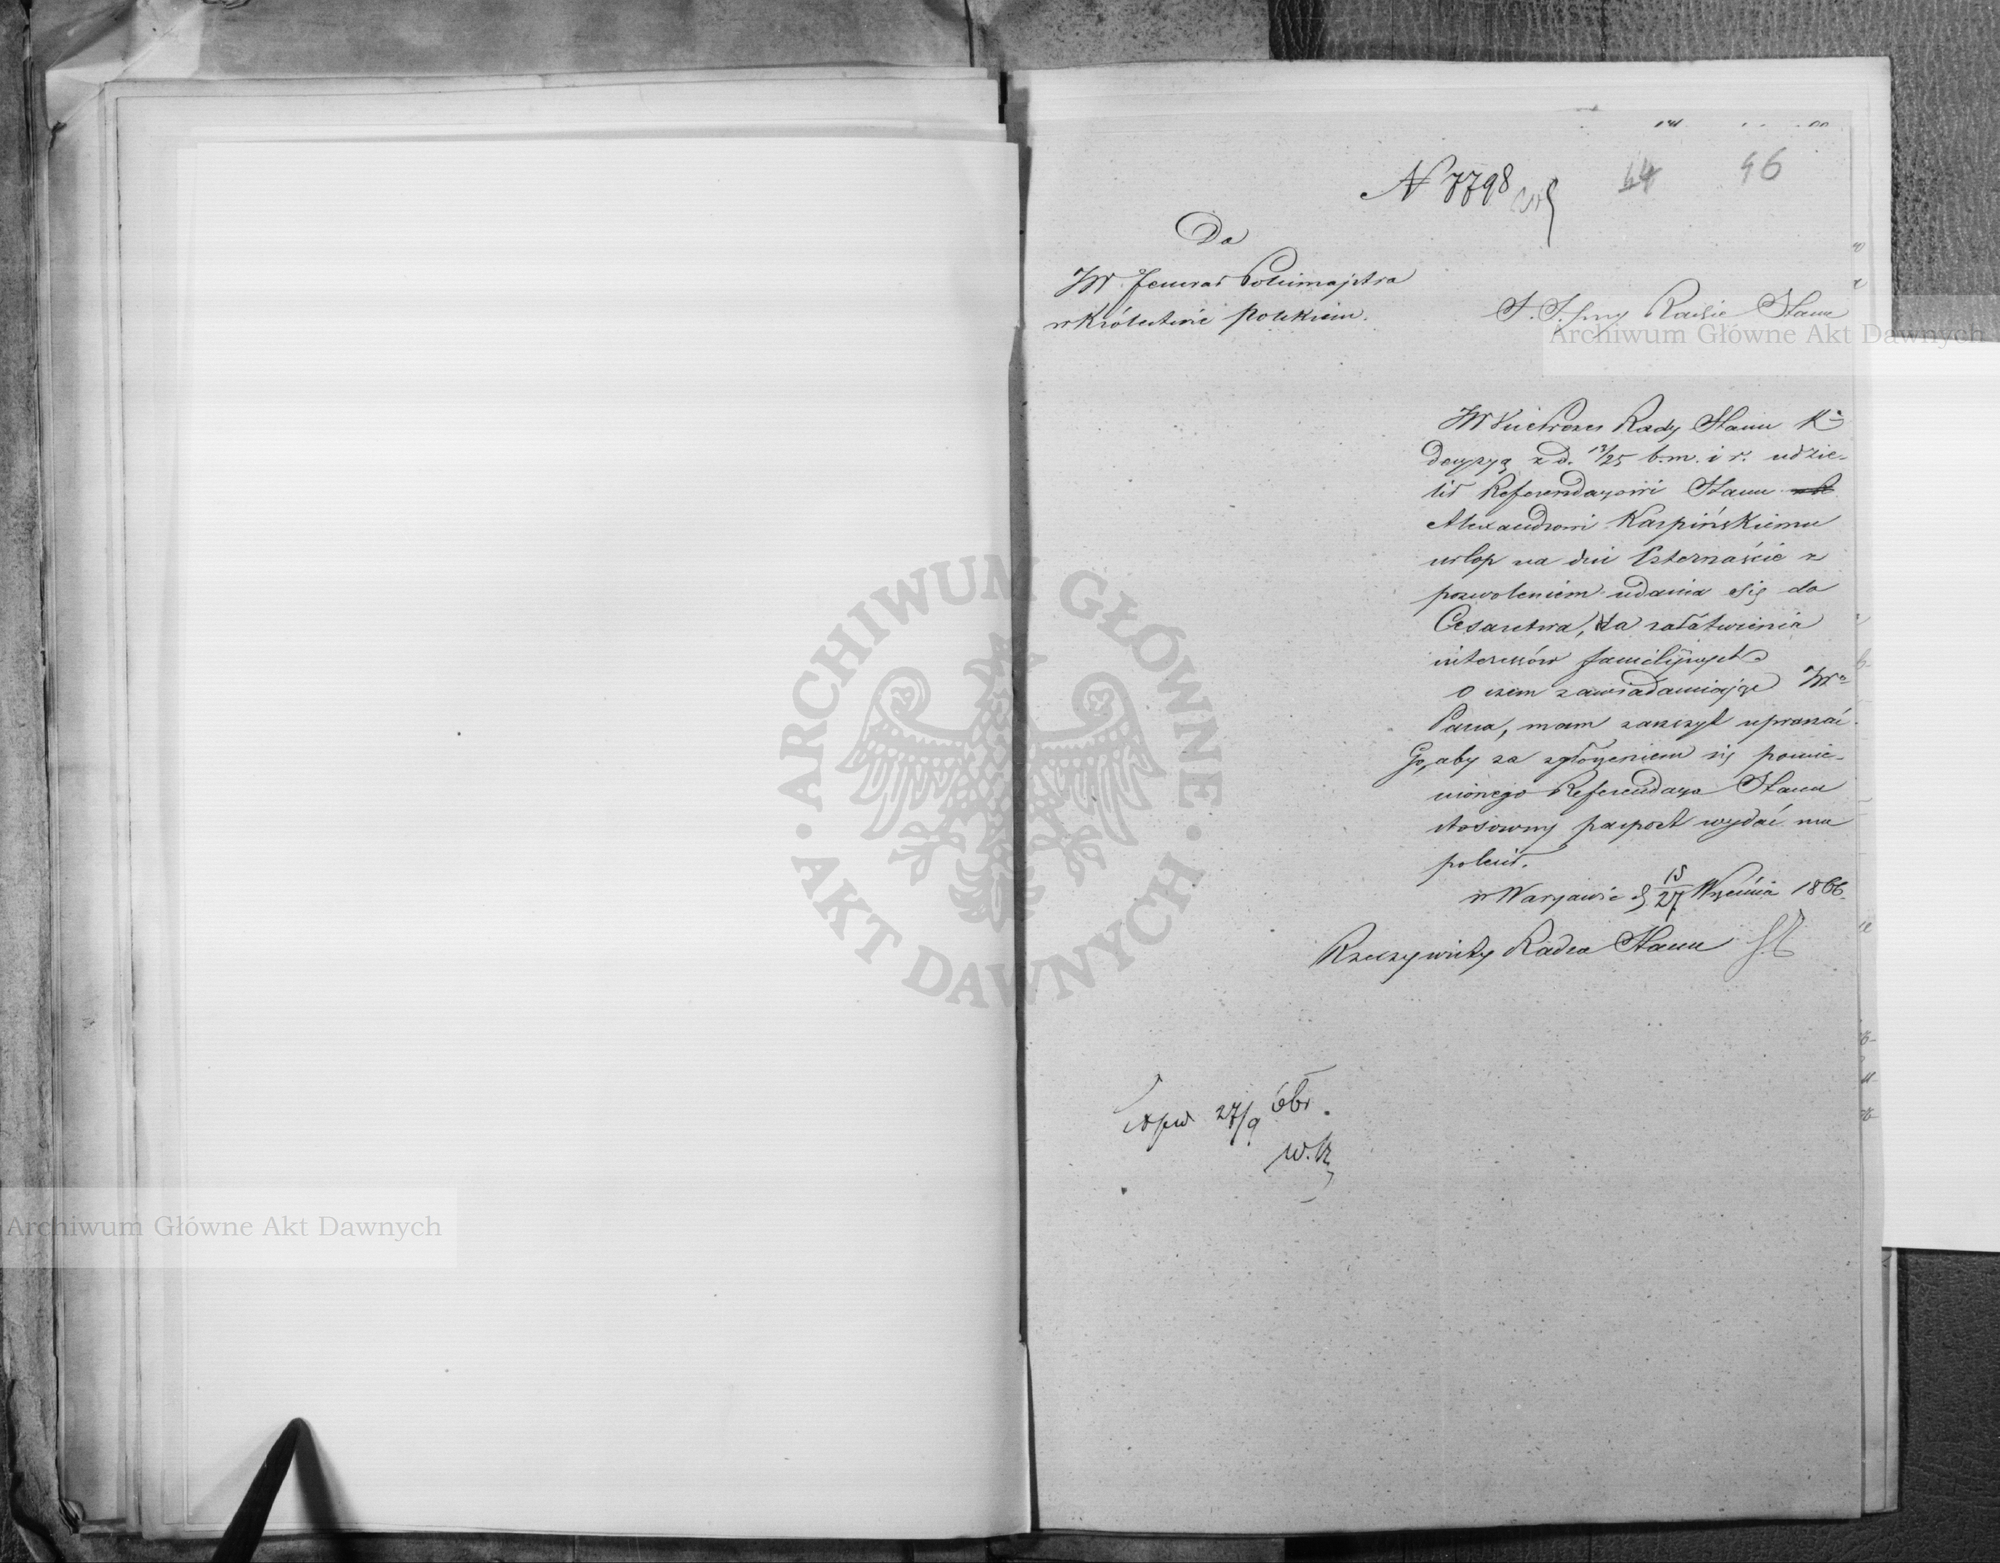 N 7798
44 46
Do
JW. Jenerał Policmajstra
w Królestwie Polskiem.
S. S. przy Radzie Stanu
JW Vice Prezes Rady Stanu Kr.
decyzyą z d. 13/25 b. m. i r. udzie-
lił Referendarzowi Stanu
Alexandrowi Karpińskiemu
urlop na dni czternaście z
pozwoleniem udania się do
Cesarstwa, dla załatwienia
interessów familijnych.
O czem zawiadamiając JWo
Pana, mam zaszczyt upraszać
Go, aby za zgłoszeniem się pomie-
nionego Referendarza Stanu
stosowny paszport wydać mu
polecił.
w Warszawie d. 15/27 Września 1866.
Rzeczywisty Radca Stanu
Exped 27/9
W. K.
Archiwum Główne Akt Dawnych
Archiwum Główne Akt Dawnych
ARCHIWUM GŁÓWNE · AKT DAWNYCH ·